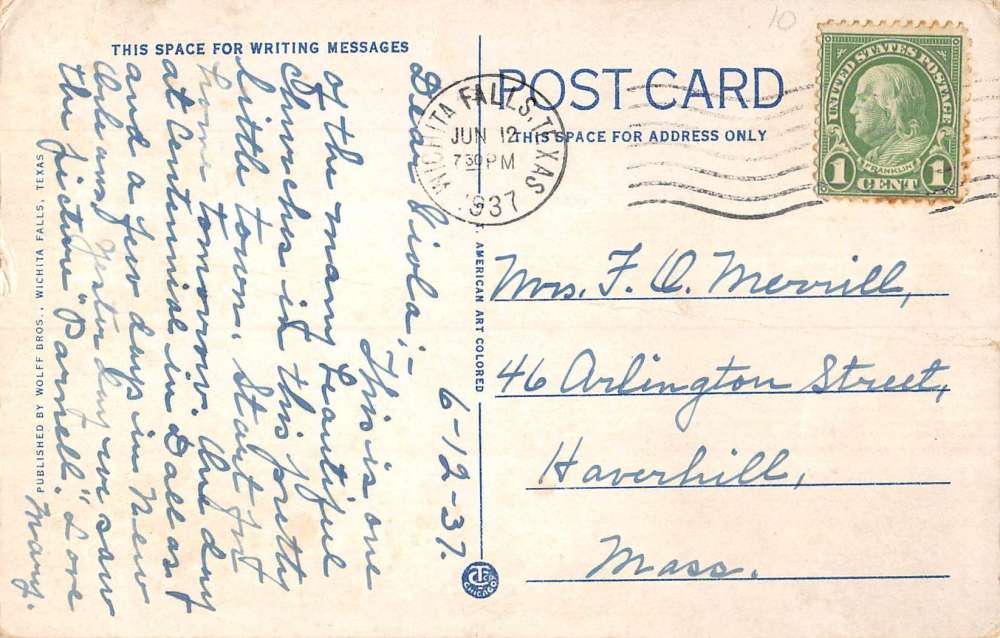 THIS SPACE FOR WRITING MESSAGES
6-12-37.
Dear Viola;-
This is one
of the many beautiful
Churches in this pretty
little town. Start for
home tomorrow. One day
at Centennial in Dallas
and a few days in New
Orleans, Yesterday we saw
the picture "Parnell." Love
Mary.
PUBLISHED BY WOLFF BROS., WICHITA FALLS, TEXAS
AMERICAN ART COLORED
POST CARD
THIS SPACE FOR ADDRESS ONLY
WICHITA FALLS, TEXAS
JUN 12
7 30 PM
1937
UNITED STATES POSTAGE
FRANKLIN
1 CENT 1
10
Mrs. F. O. Merrill,
46 Arlington Street,
Haverhill,
Mass.
CT CO
CHICAGO